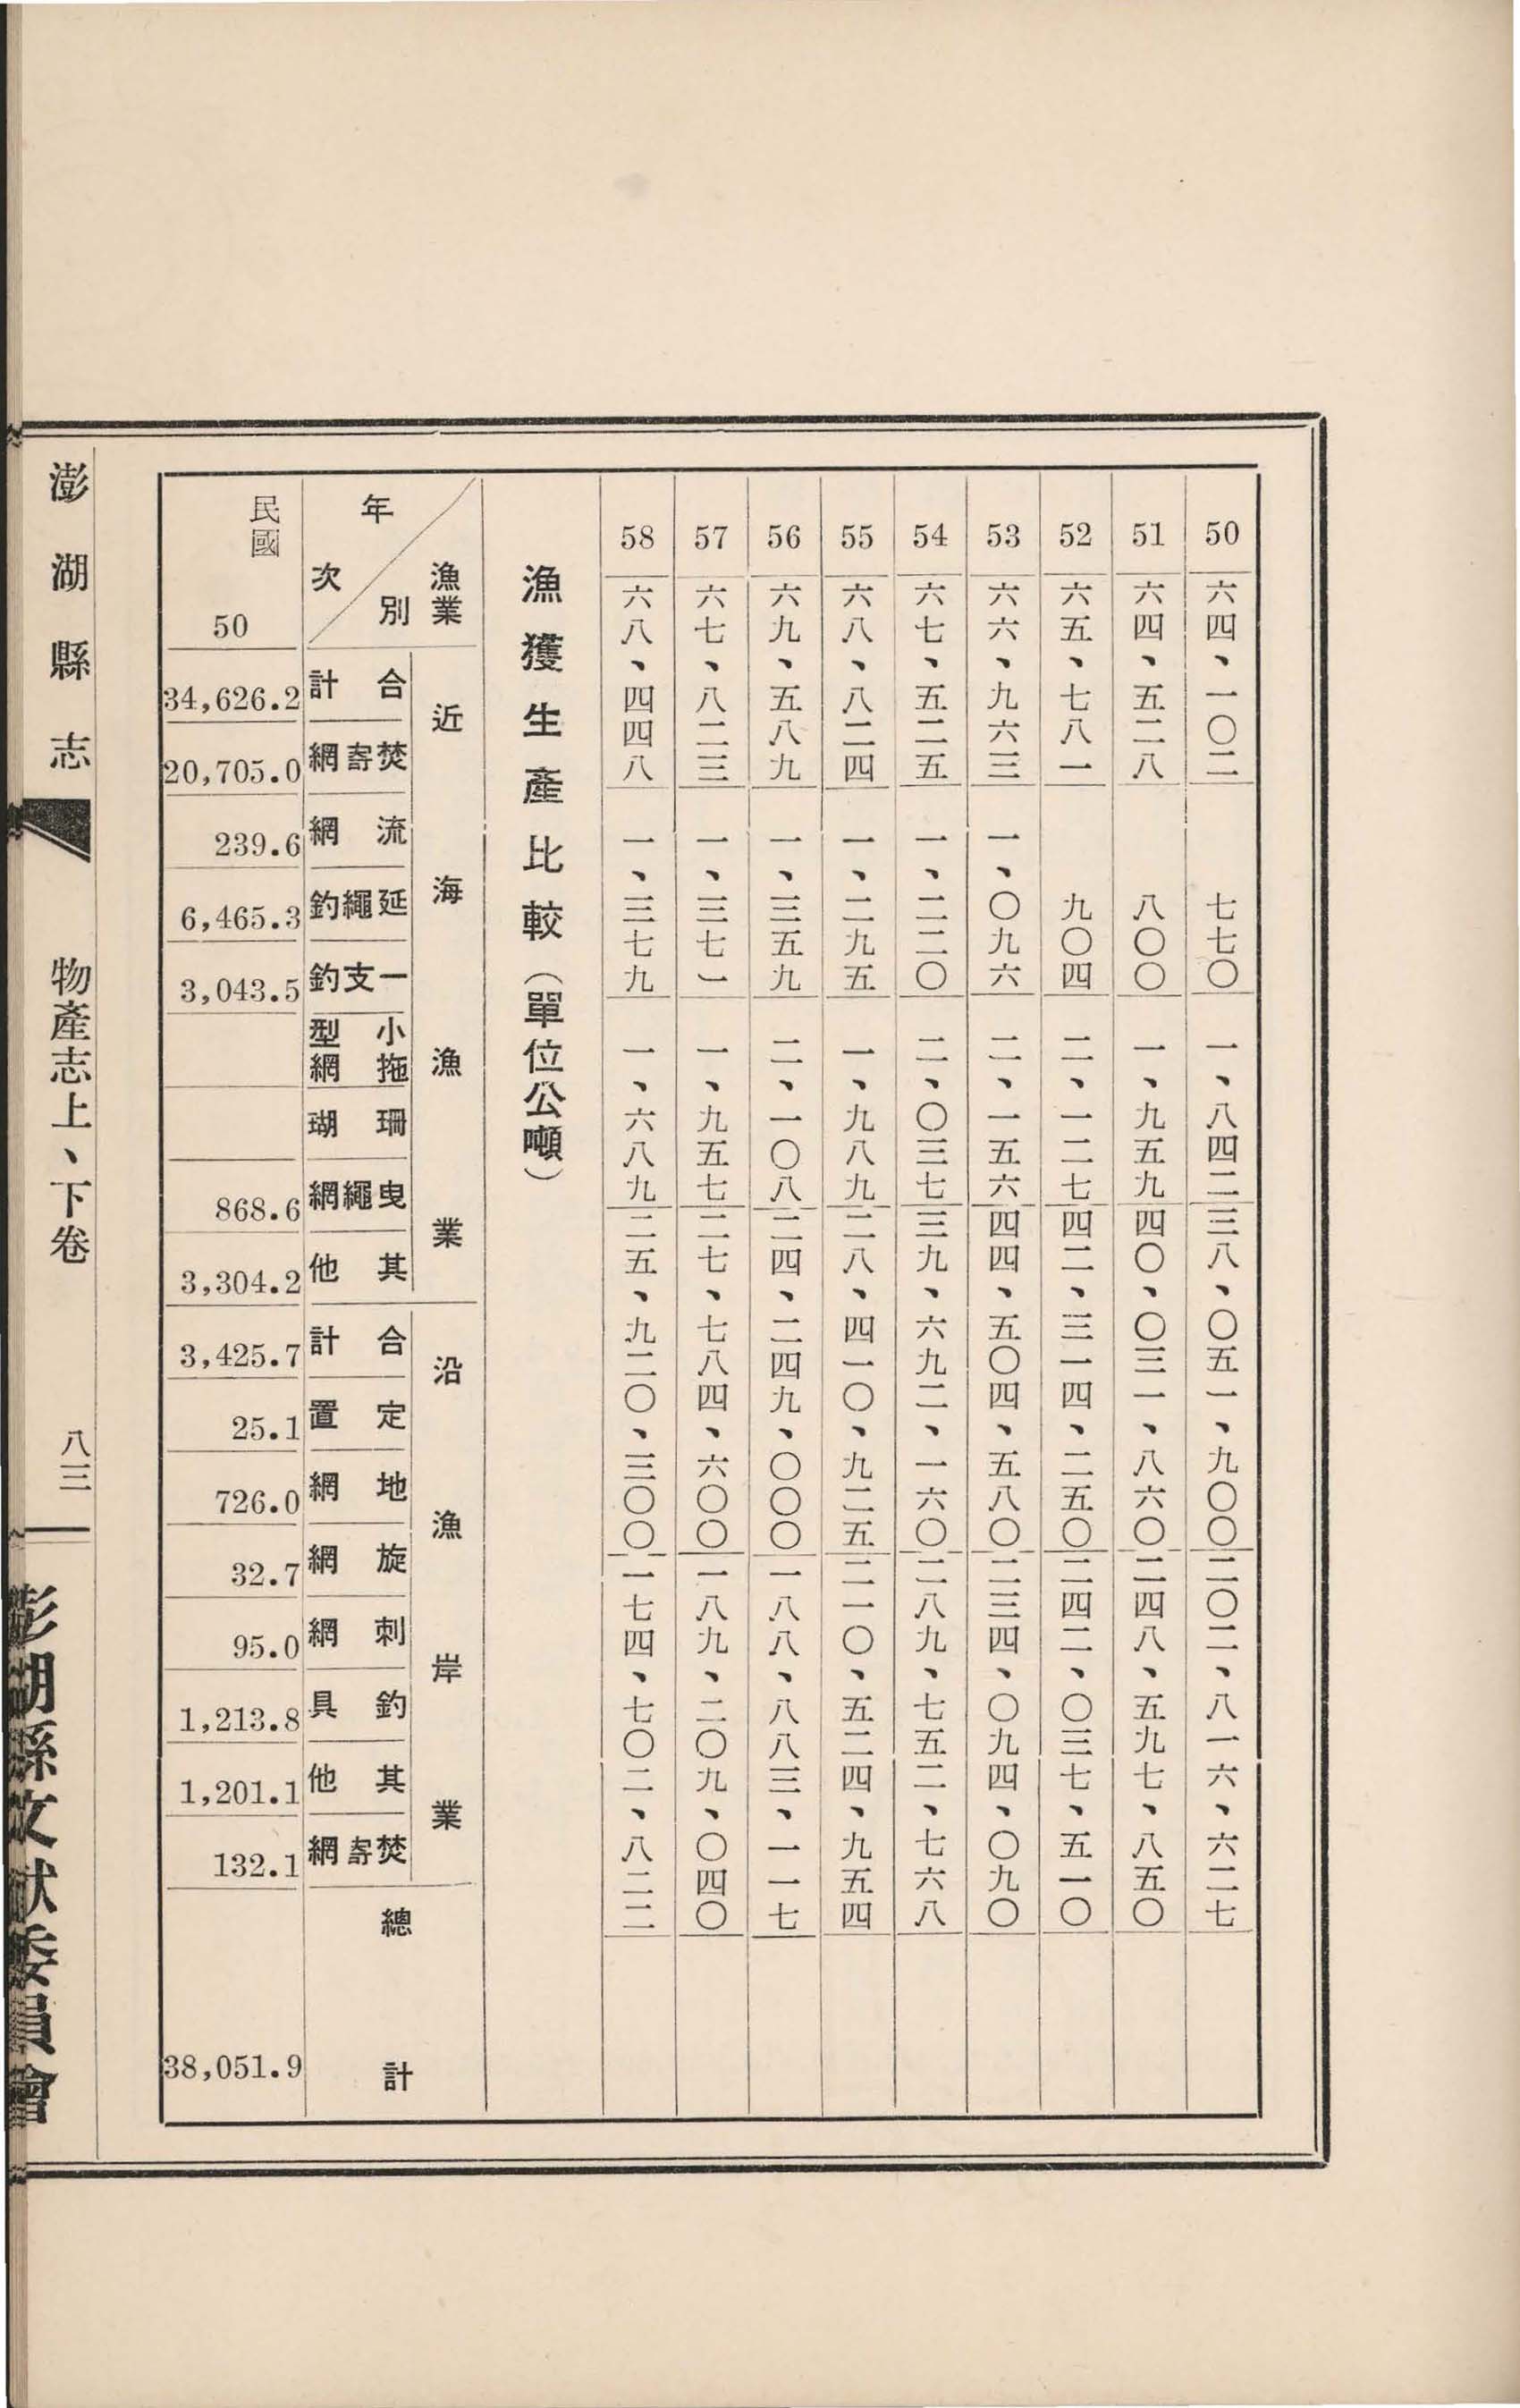 50 六四、一〇二 七七〇 一、八四二 三八、〇五一、九〇〇 二〇二、八一六、六二七
51 六四、五二八 八〇〇 一、九五九 四〇、〇三一、八六〇 二四八、五九七、八五〇
52 六五、七八一 九〇四 二、一二七 四二、三一四、二五〇 二四二、〇三七、五一〇
53 六六、九六三 一、〇九六 二、一五六 四四、五〇四、五八〇 二三四、〇九四、〇九〇
54 六七、五二五 一、二二〇 二、〇三七 三九、六九二、一六〇 二八九、七五二、七六八
55 六八、八二四 一、二九五 一、九八九 二八、四一〇、九二五 二一〇、五二四、九五四
56 六九、五八九 一、三五九 二、一〇八 二四、二四九、〇〇〇 一八八、八八三、一一七
57 六七、八二三 一、三七一 一、九五七 二七、七八四、六〇〇 一八九、二〇九、〇四〇
58 六八、四四八 一、三七九 一、六八九 二五、九二〇、三〇〇 一七四、七〇二、八二二
漁獲生產比較（單位公噸）
漁業別 近海漁業 沿岸漁業
年次 合計 焚寄網 流網 延繩釣 一支釣 小型拖網 珊瑚 曳繩網 其他 合計 定置 地網 旋網 刺網 釣具 其他 焚寄網 總計
民國 50 34,626.2 20,705.0 239.6 6,465.3 3,043.5 868.6 3,304.2 3,425.7 25.1 726.0 32.7 95.0 1,213.8 1,201.1 132.1 38,051.9
澎湖縣志 物產志上、下卷 八三
澎湖縣文獻委員會